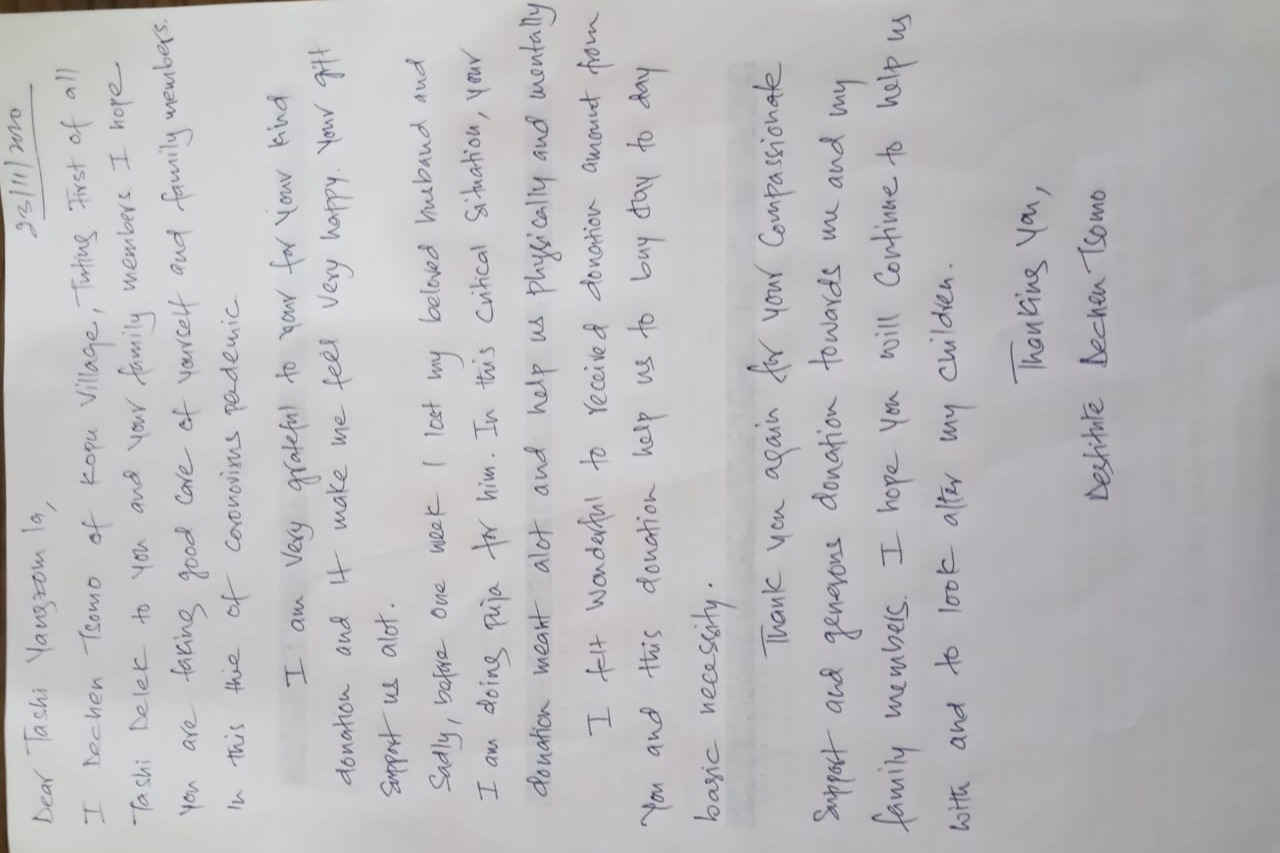 23/11/2020
Dear Tashi Yangzom la,
I Dechen Tsomo of Kopu Village, Tuting First of all
Tashi Delek to you and your family members. I hope
you are taking good care of yourself and family members.
In this thie of coronovirus pendemic.
I am very grateful to your for your kind
donation and it make me feel very happy. Your gift
support us alot.
Sadly, before one week I lost my beloved husband and
I am doing puja for him. In this critical situation, your
donation meant alot and help us physically and mentally
I felt wonderful to received donation amount from
you and this donation help us to buy day to day
basic necessity.
Thank you again for your compassionate
support and generous donation towards me and my
family members. I hope you will continue to help us
with and to look after my children.
Thanking you,
Destitute Dechen Tsomo